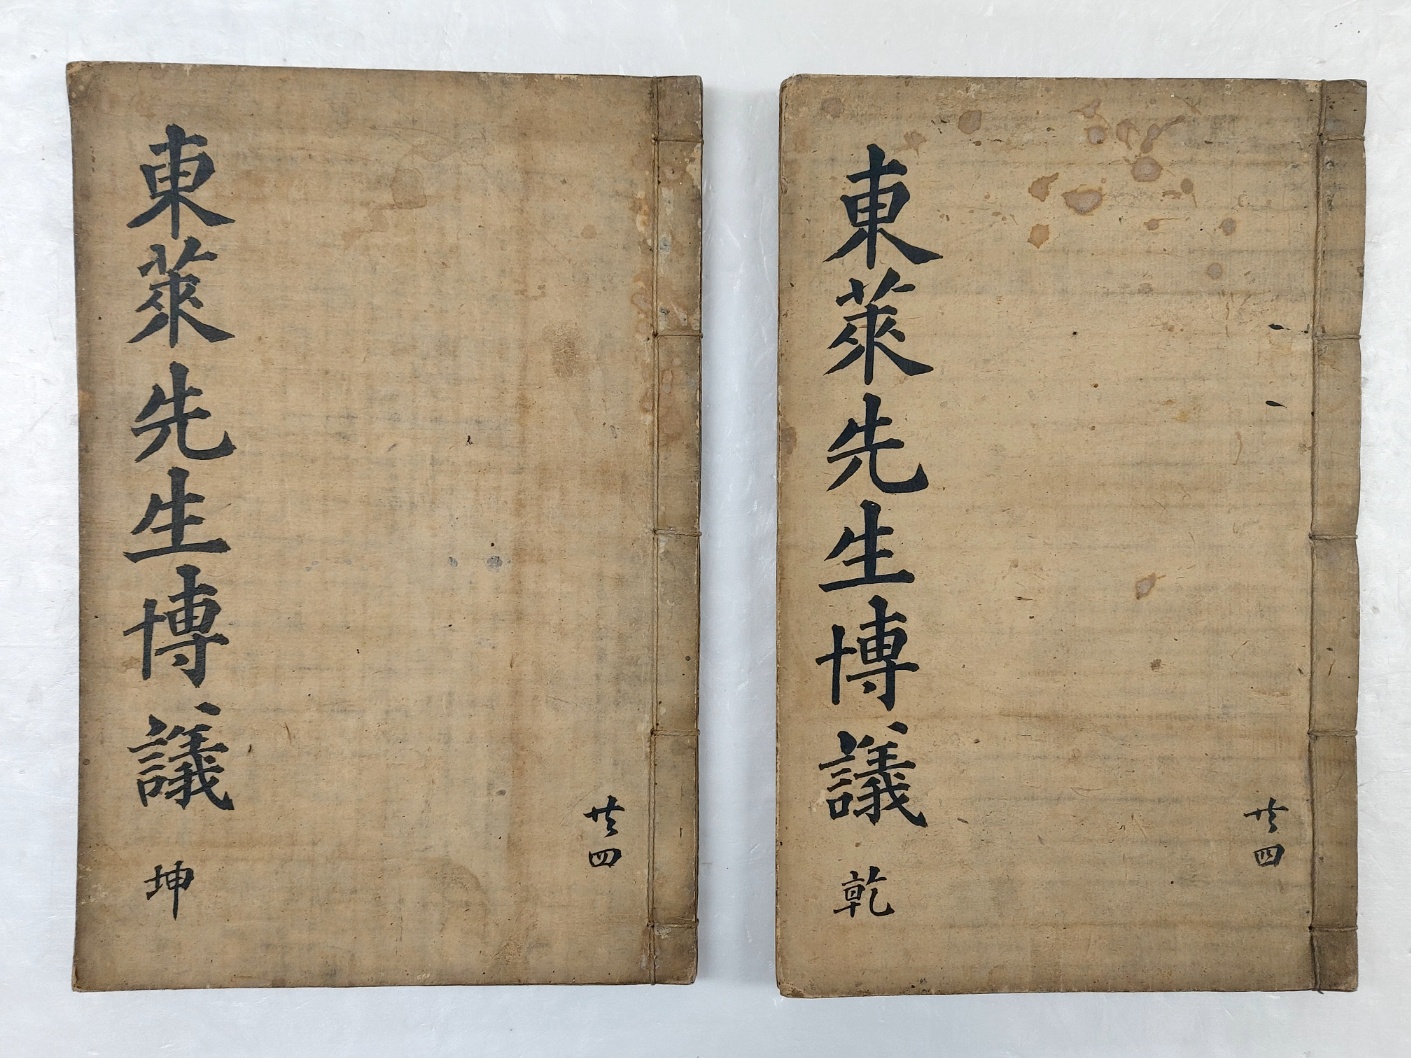 東萊先生博議 乾
共四
東萊先生博議 坤
共四